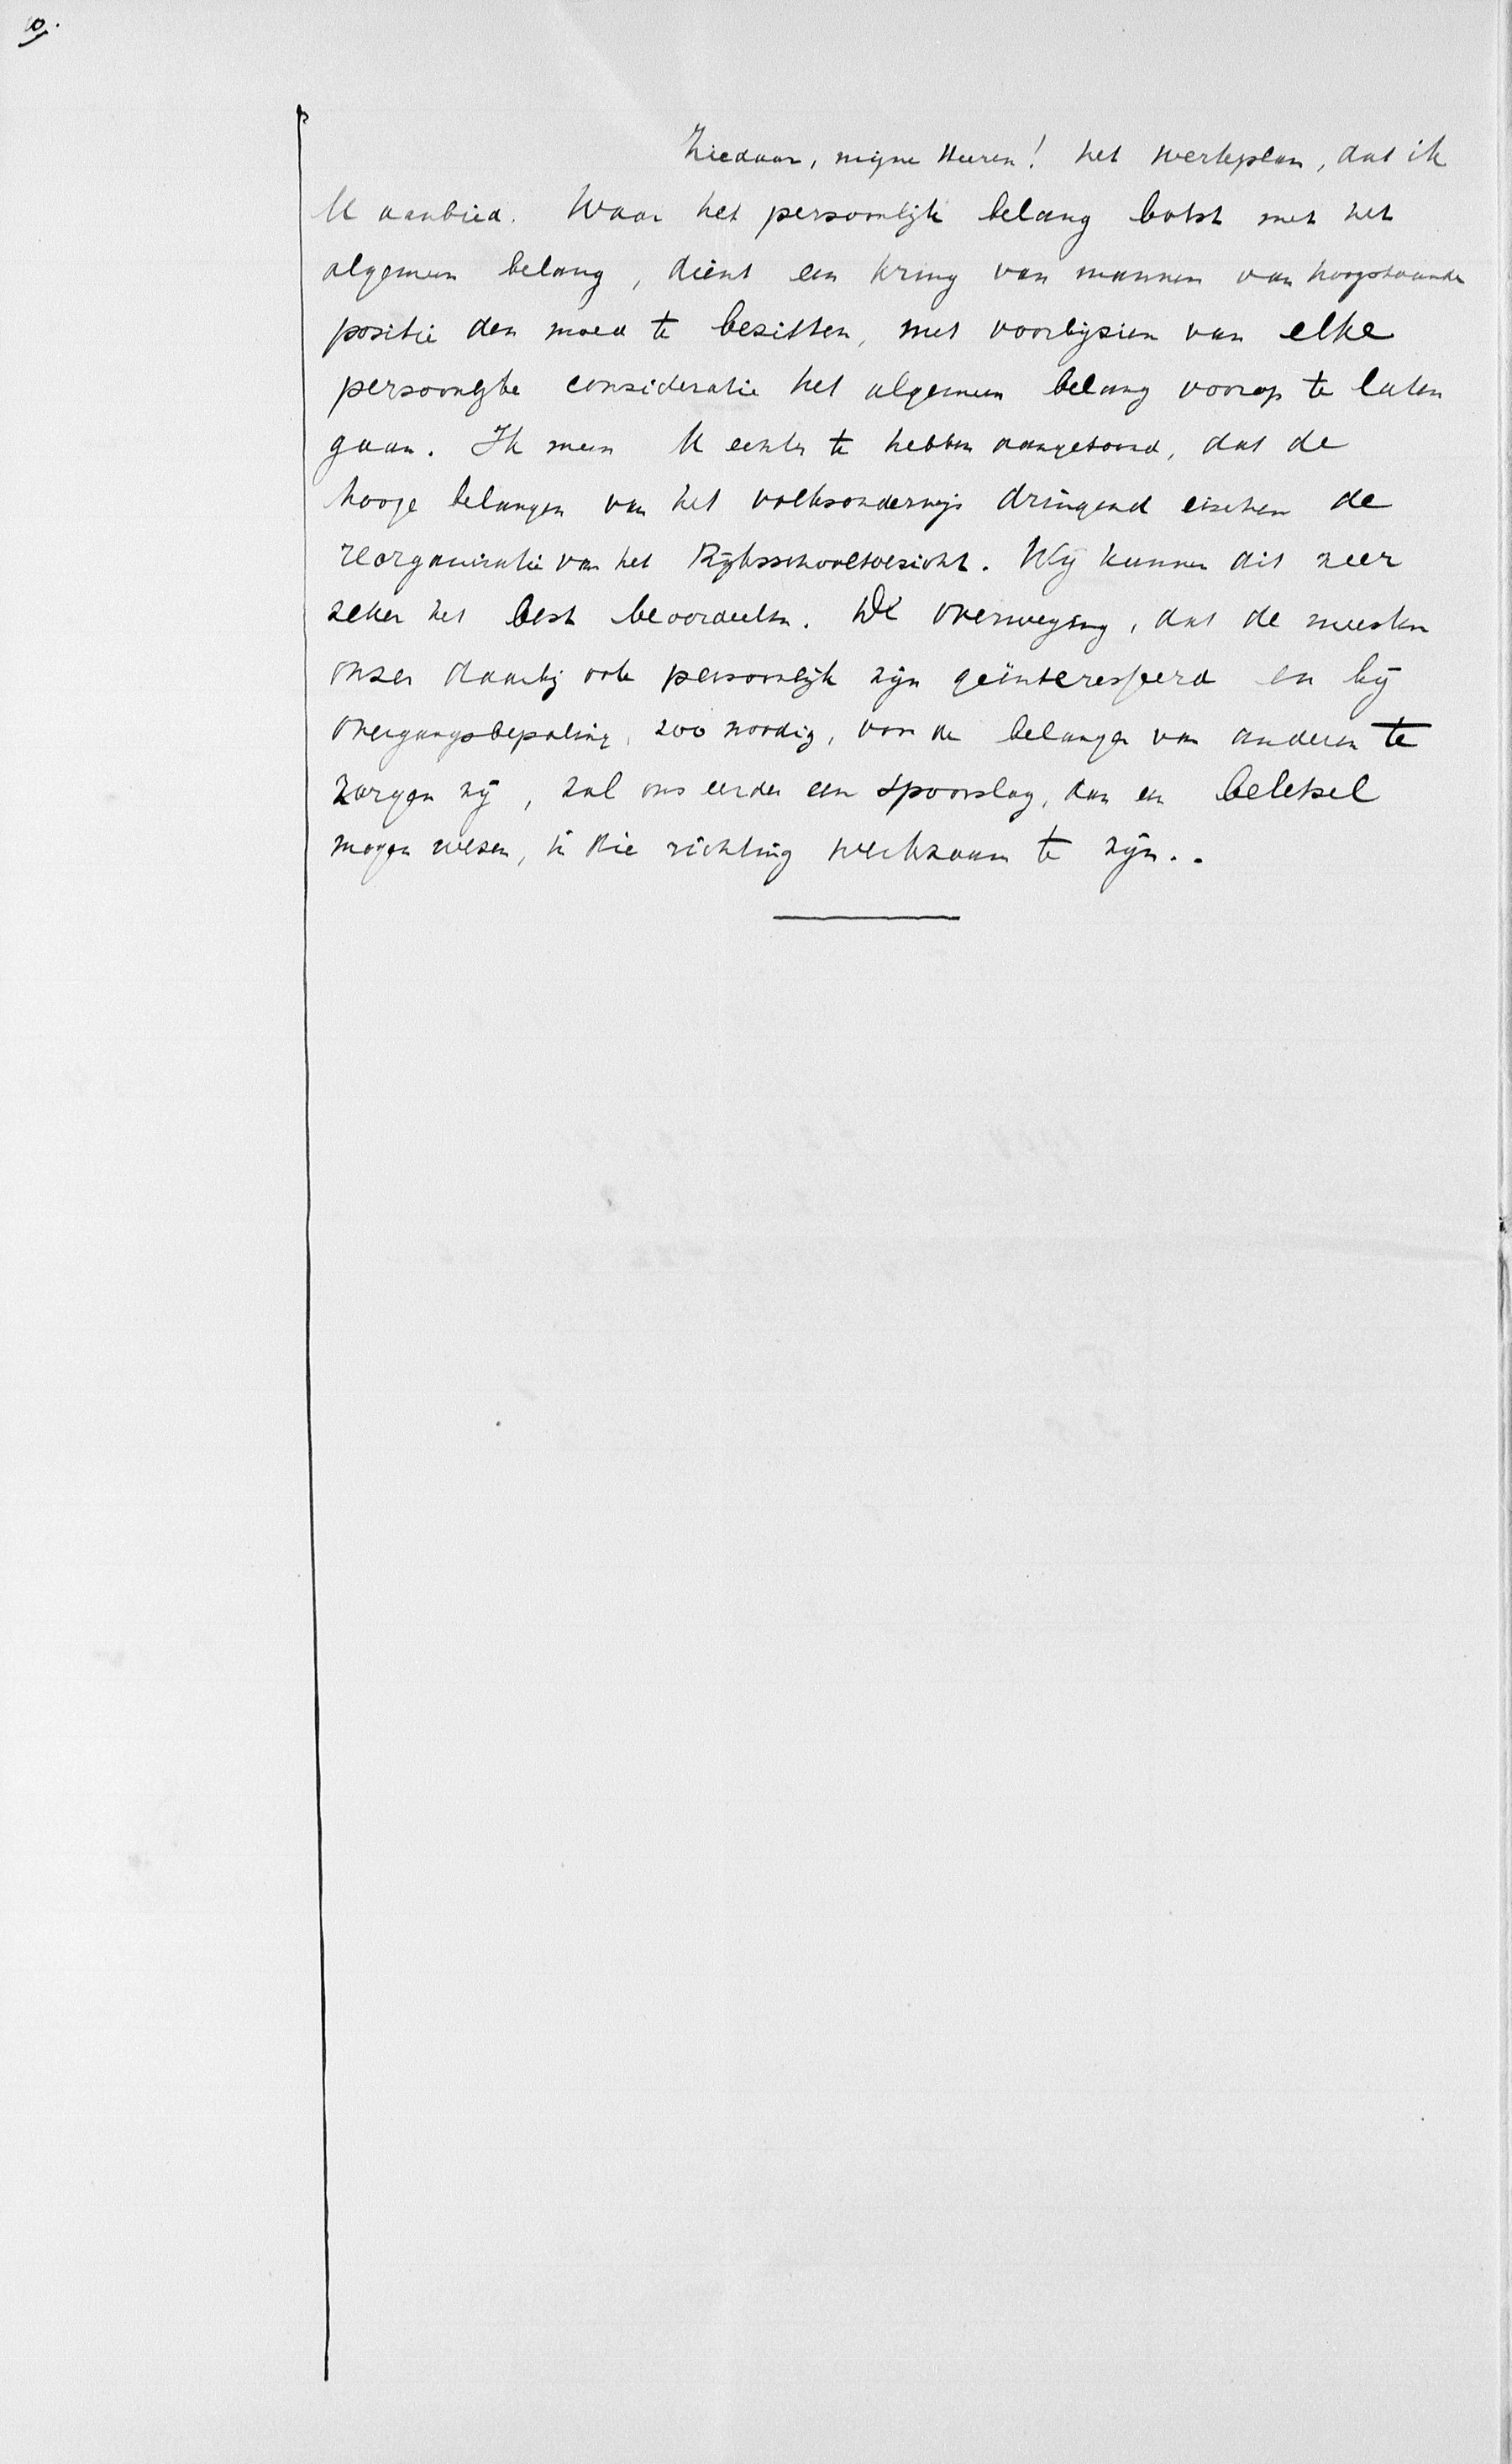 10.
Ziedaar, mijne Heeren! het werkplan, dat ik
U aanbied. Waar het persoonlijk belang botst met het
algemeen belang, dient een kring van mannen van hoogstaande
positie den moed te bezitten, met voorbijzien van elke
persoonlijke consideratie het algemeen belang voorop te laten
gaan. Ik meen U echter te hebben aangetoond, dat de
hooge belangen van het volksonderwijs dringend eischen de
reorganisatie van het Rijksschooltoezicht. Wij kunnen dit zeer
zeker het best beoordeelen. De overweging, dat de meesten
onzer daarbij ook persoonlijk zijn geïnteresseerd en bij
overgangsbepaling, zoo noodig, voor de belangen van anderen te
zorgen zij, zal ons eerder een spoorslag, dan een beletsel
mogen wezen, in die richting werkzaam te zijn..